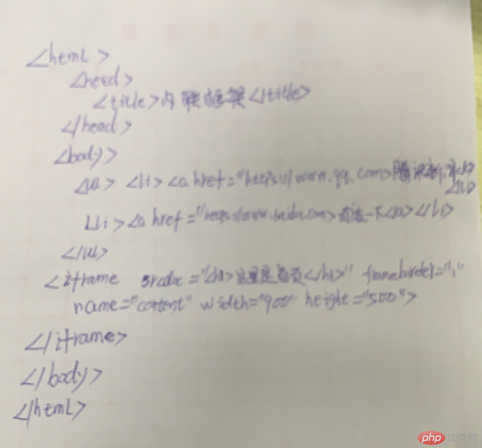 <html>
<head>
<title>内联框架</title>
</head>
<body>
<ul> <li> <a href="https://www.qq.com>腾讯
<li> <a href="https://www.baidu.com>百度一下<a></li>
</ul>
<iframe srcdoc="<h1>这里是首页</h1>" frameborder="1"
name="content" width="900" height="500">
</iframe>
</body>
</html>
php